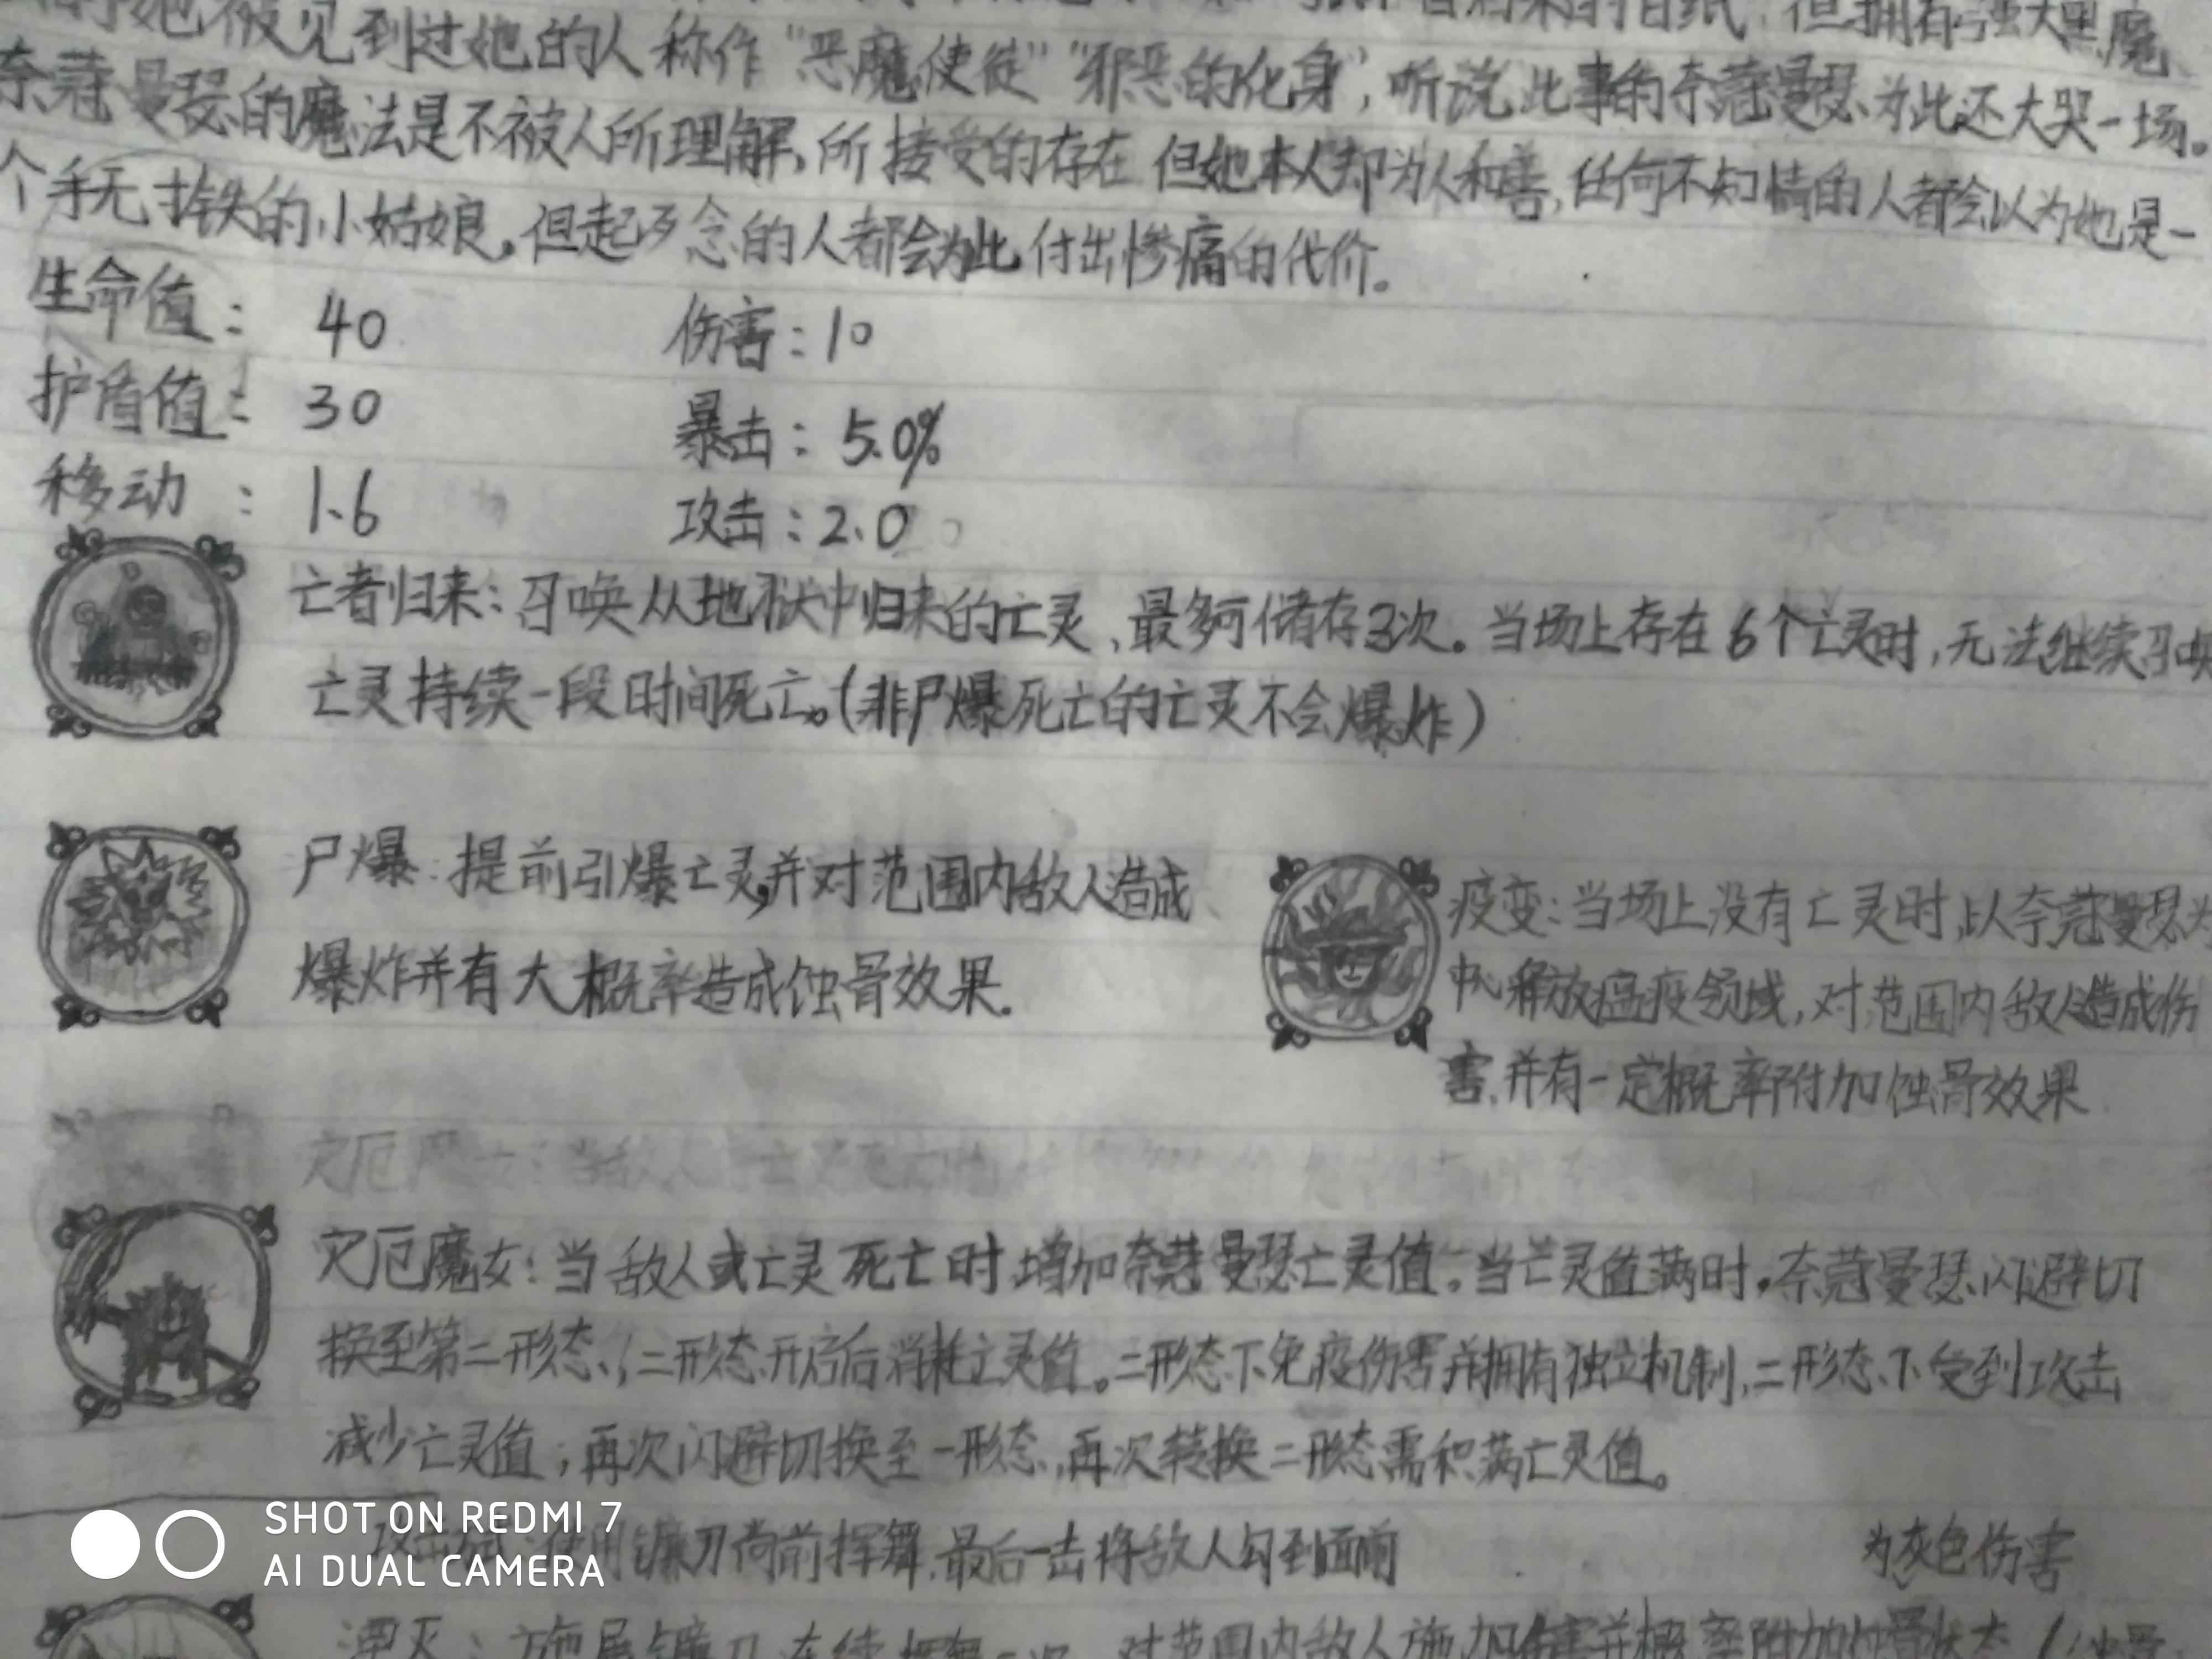 她被见到过她的人称作“恶魔使徒”“邪恶的化身”,听说此事的奈蔻曼瑟为此还大哭一场。
奈蔻曼瑟的魔法是不被人所理解,所接受的存在 但她本人却为人和善,任何不知情的人都会以为她是一
个手无寸铁的小姑娘。但起歹念的人都会为此付出惨痛的代价。
生命值: 40 伤害:10
护盾值: 30 暴击:5.0%
移动: 1.6 攻击:2.0
亡者归来:召唤从地狱中归来的亡灵,最多可储存3次。当场上存在6个亡灵时,无法继续召唤
亡灵持续一段时间死亡。(非尸爆死亡的亡灵不会爆炸)
尸爆:提前引爆亡灵,并对范围内敌人造成
爆炸并有大概率造成蚀骨效果.
疫变:当场上没有亡灵时,以奈蔻曼瑟为
中心释放瘟疫领域,对范围内敌人造成伤
害,并有一定概率附加蚀骨效果
灾厄魔女:当敌人或亡灵死亡时增加奈蔻曼瑟亡灵值。当亡灵值满时,奈蔻曼瑟闪避切
换至第二形态,二形态开启后消耗亡灵值。二形态下免疫伤害并拥有独立机制,二形态下受到攻击
减少亡灵值;再次闪避切换至一形态,再次转换二形态需积满亡灵值。
镰刀向前挥舞,最后一击将敌人勾到面前 为灰色伤害
湮灭: 对范围内敌人施加伤害并概率附加蚀骨状态
SHOT ON REDMI 7
AI DUAL CAMERA